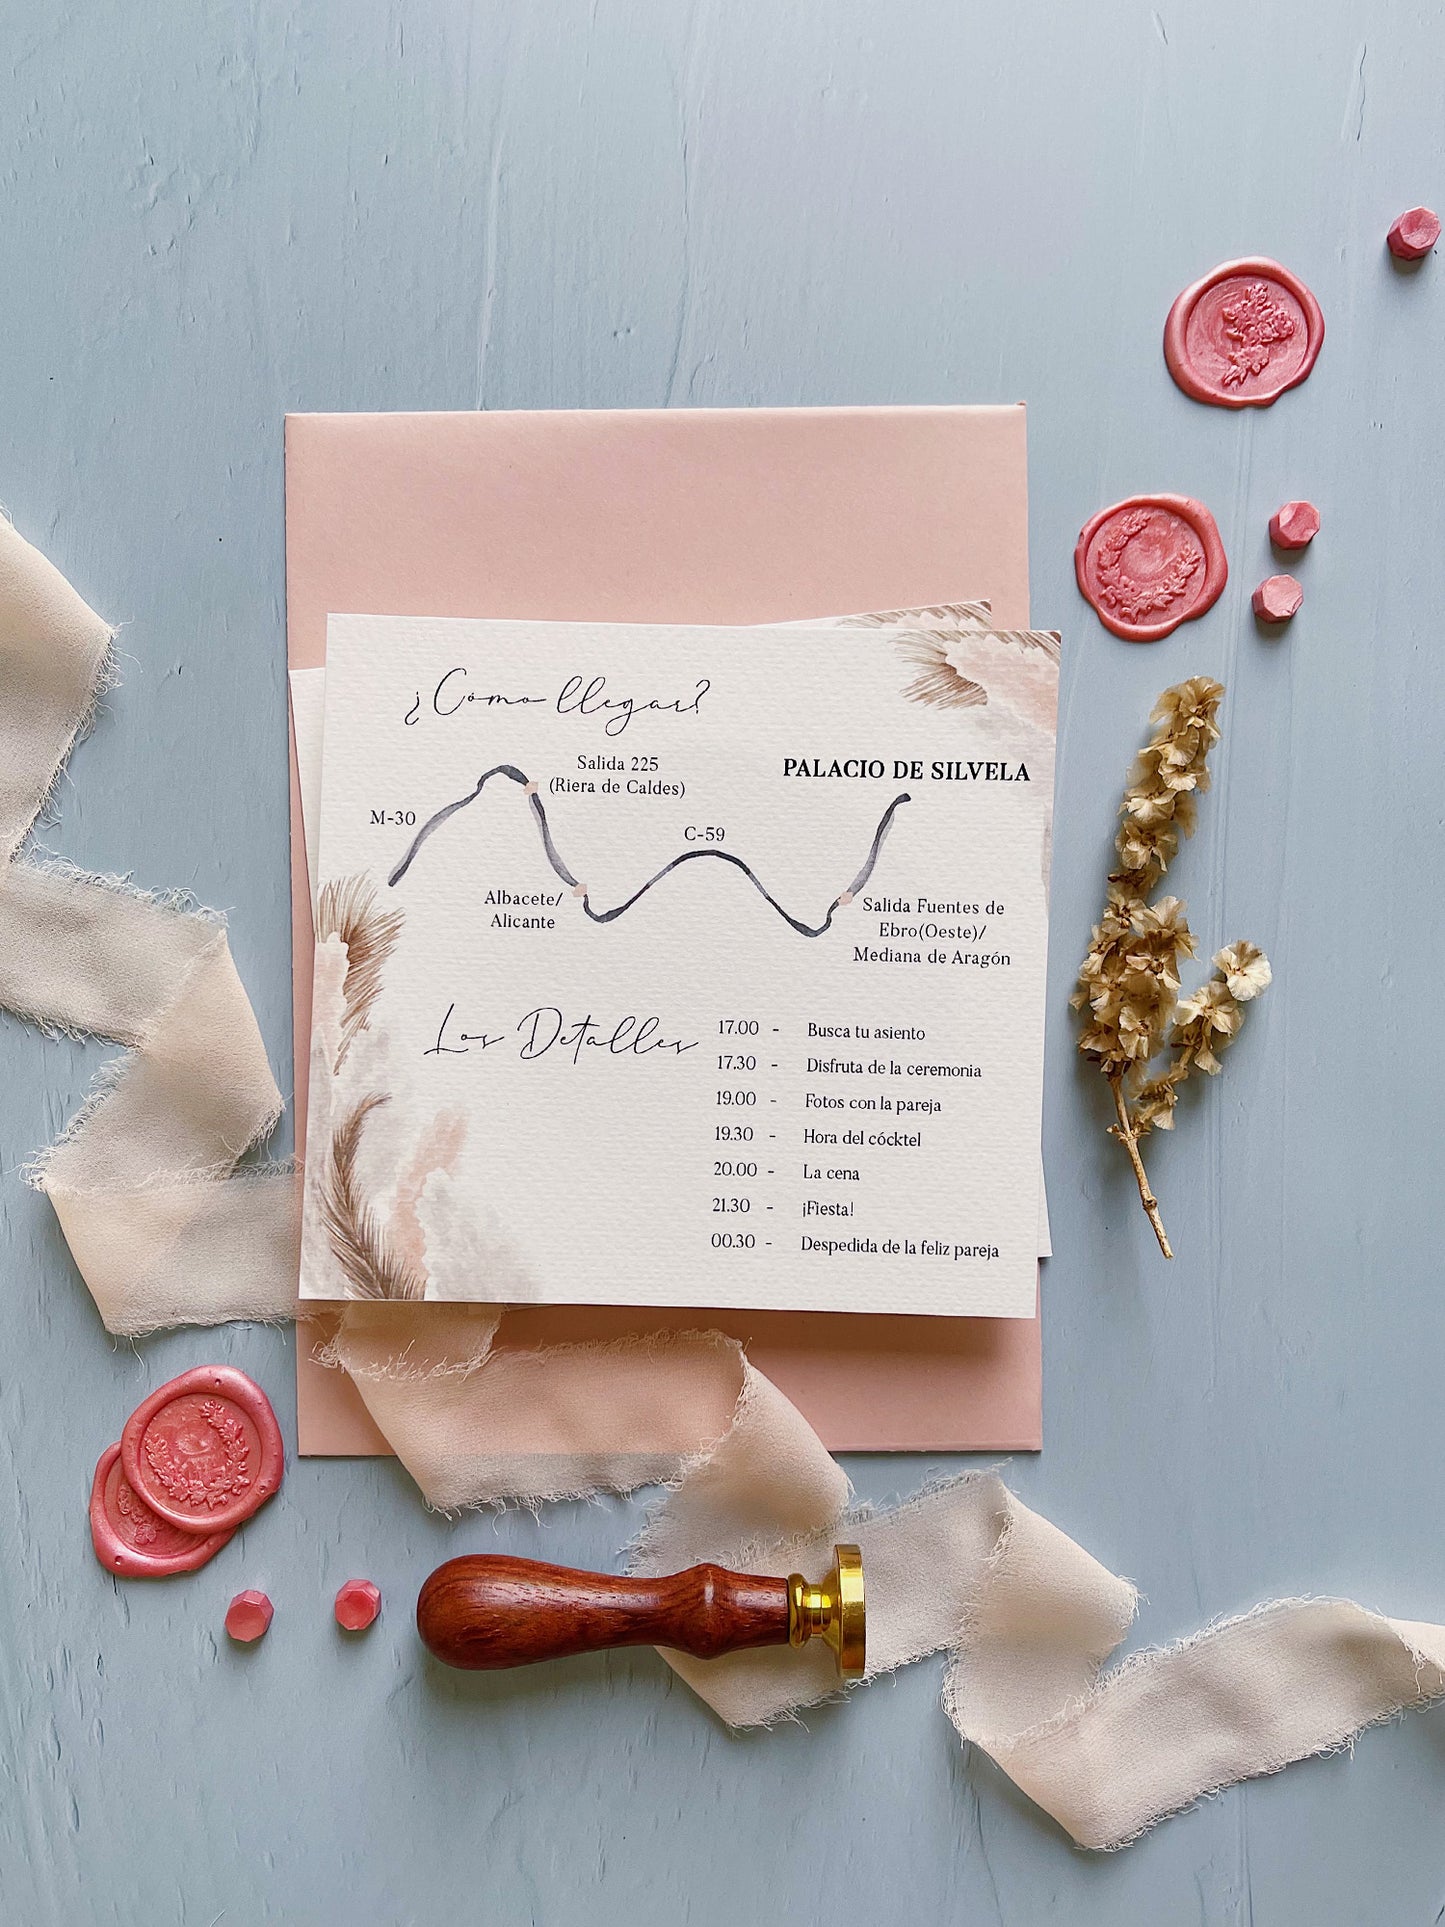 ¿Como llegar?
Salida 225
(Riera de Caldes)
PALACIO DE SILVELA
M-30
C-59
Albacete/
Alicante
Salida Fuentes de
Ebro(Oeste)/
Mediana de Aragón
Los Detalles
17.00 - Busca tu asiento
17.30 - Disfruta de la ceremonia
19.00 - Fotos con la pareja
19.30 - Hora del cócktel
20.00 - La cena
21.30 - ¡Fiesta!
00.30 - Despedida de la feliz pareja